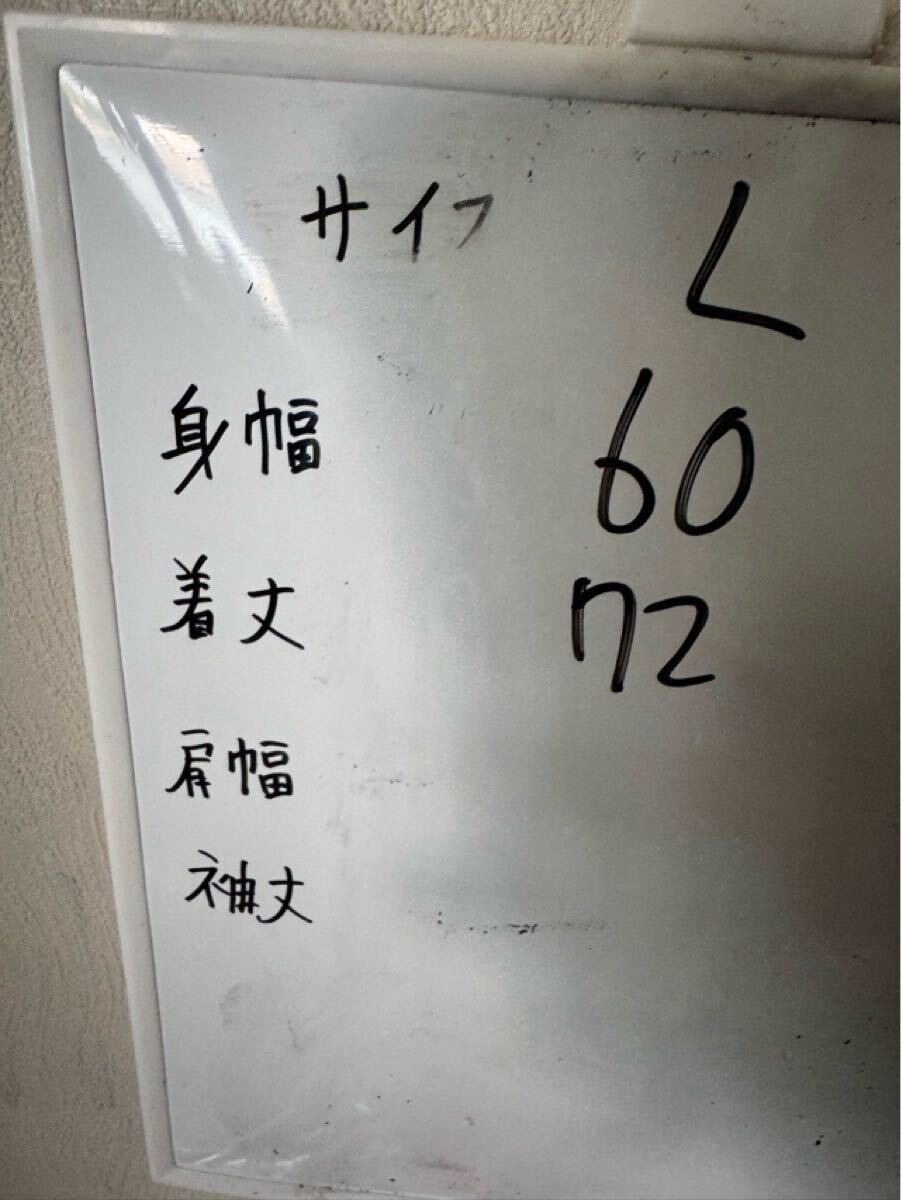 サイフ L
身幅 60
着丈 72
肩幅
袖丈